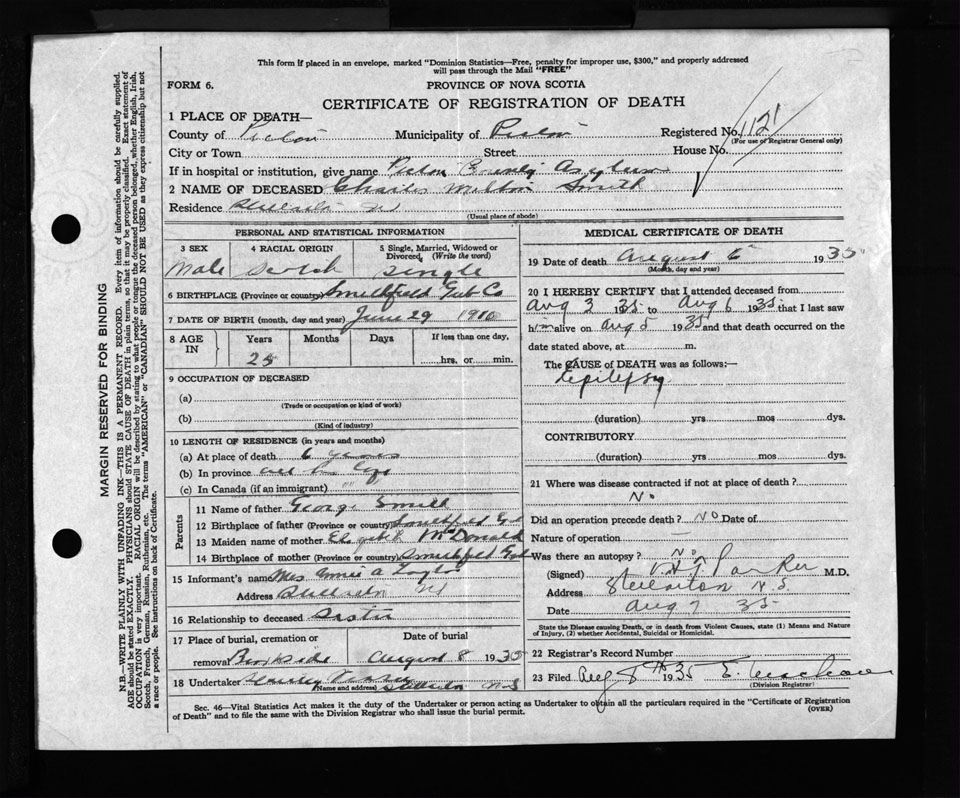 This form if placed in an envelope, marked "Dominion Statistics—Free, penalty for improper use, $300," and properly addressed
will pass through the Mail "FREE"
FORM 6.
PROVINCE OF NOVA SCOTIA
CERTIFICATE OF REGISTRATION OF DEATH
1 PLACE OF DEATH—
County of Pictou Municipality of Pictou Registered No. 1121
(For use of Registrar General only)
City or Town Street House No.
If in hospital or institution, give name Pictou County Asylum
2 NAME OF DECEASED Charles Milton Smith
Residence Stellarton NS
(Usual place of abode)
PERSONAL AND STATISTICAL INFORMATION
3 SEX 4 RACIAL ORIGIN 5 Single, Married, Widowed or Divorced (Write the word)
Male Scotch Single
6 BIRTHPLACE (Province or country) Smithfield Guy Co
7 DATE OF BIRTH (month, day and year) June 29 1910
8 AGE IN Years Months Days If less than one day,
25 hrs. or min.
9 OCCUPATION OF DECEASED
(a)
(Trade or occupation or kind of work)
(b)
(Kind of industry)
10 LENGTH OF RESIDENCE (in years and months)
(a) At place of death 6 years
(b) In province all his life
(c) In Canada (if an immigrant) "
Parents
11 Name of father George Smith
12 Birthplace of father (Province or country) Smithfield
13 Maiden name of mother Elizabeth McDonald
14 Birthplace of mother (Province or country) Smithfield
15 Informant's name Mrs Annie A Taylor
Address Stellarton NS
16 Relationship to deceased Sister
17 Place of burial, cremation or removal Date of burial
Brookside August 8 1935
18 Undertaker Stanley
(Name and address) Stellarton N S
MEDICAL CERTIFICATE OF DEATH
19 Date of death August 6 1935
(Month, day and year)
20 I HEREBY CERTIFY that I attended deceased from
Aug 3 1935 to Aug 6 1935 that I last saw
him alive on Aug 5 1935 and that death occurred on the
date stated above, at m.
The CAUSE of DEATH was as follows:—
Epilepsy
(duration) yrs mos dys.
CONTRIBUTORY
(duration) yrs mos dys.
21 Where was disease contracted if not at place of death?
No
Did an operation precede death? No Date of
Nature of operation —
Was there an autopsy? No
(Signed) Parker M.D.
Address Stellarton N.S.
Date Aug 7 35
State the Disease causing Death, or in death from Violent Causes, state (1) Means and
Nature of Injury, (2) whether Accidental, Suicidal or Homicidal.
22 Registrar's Record Number
23 Filed Aug 8th 1935 E.
(Division Registrar)
Sec. 46—Vital Statistics Act makes it the duty of the Undertaker or person acting as Undertaker to obtain all the particulars required in the "Certificate of Registration
of Death" and to file the same with the Division Registrar who shall issue the burial permit.
(OVER)
MARGIN RESERVED FOR BINDING
N.B.—WRITE PLAINLY WITH UNFADING INK—THIS IS A PERMANENT RECORD. Every item of information should be carefully supplied.
AGE should be stated EXACTLY. PHYSICIANS should STATE CAUSE OF DEATH in plain terms, so that it may be properly classified. Exact statement of
OCCUPATION is very important. RACIAL ORIGIN will be described by stating to what people or tongue the deceased person belonged, whether English, Irish,
Scotch, French, German, Russian, Ruthenian, etc. The terms "AMERICAN" or "CANADIAN" SHOULD NOT BE USED as they express citizenship but not
a race or people. See instructions on back of Certificate.